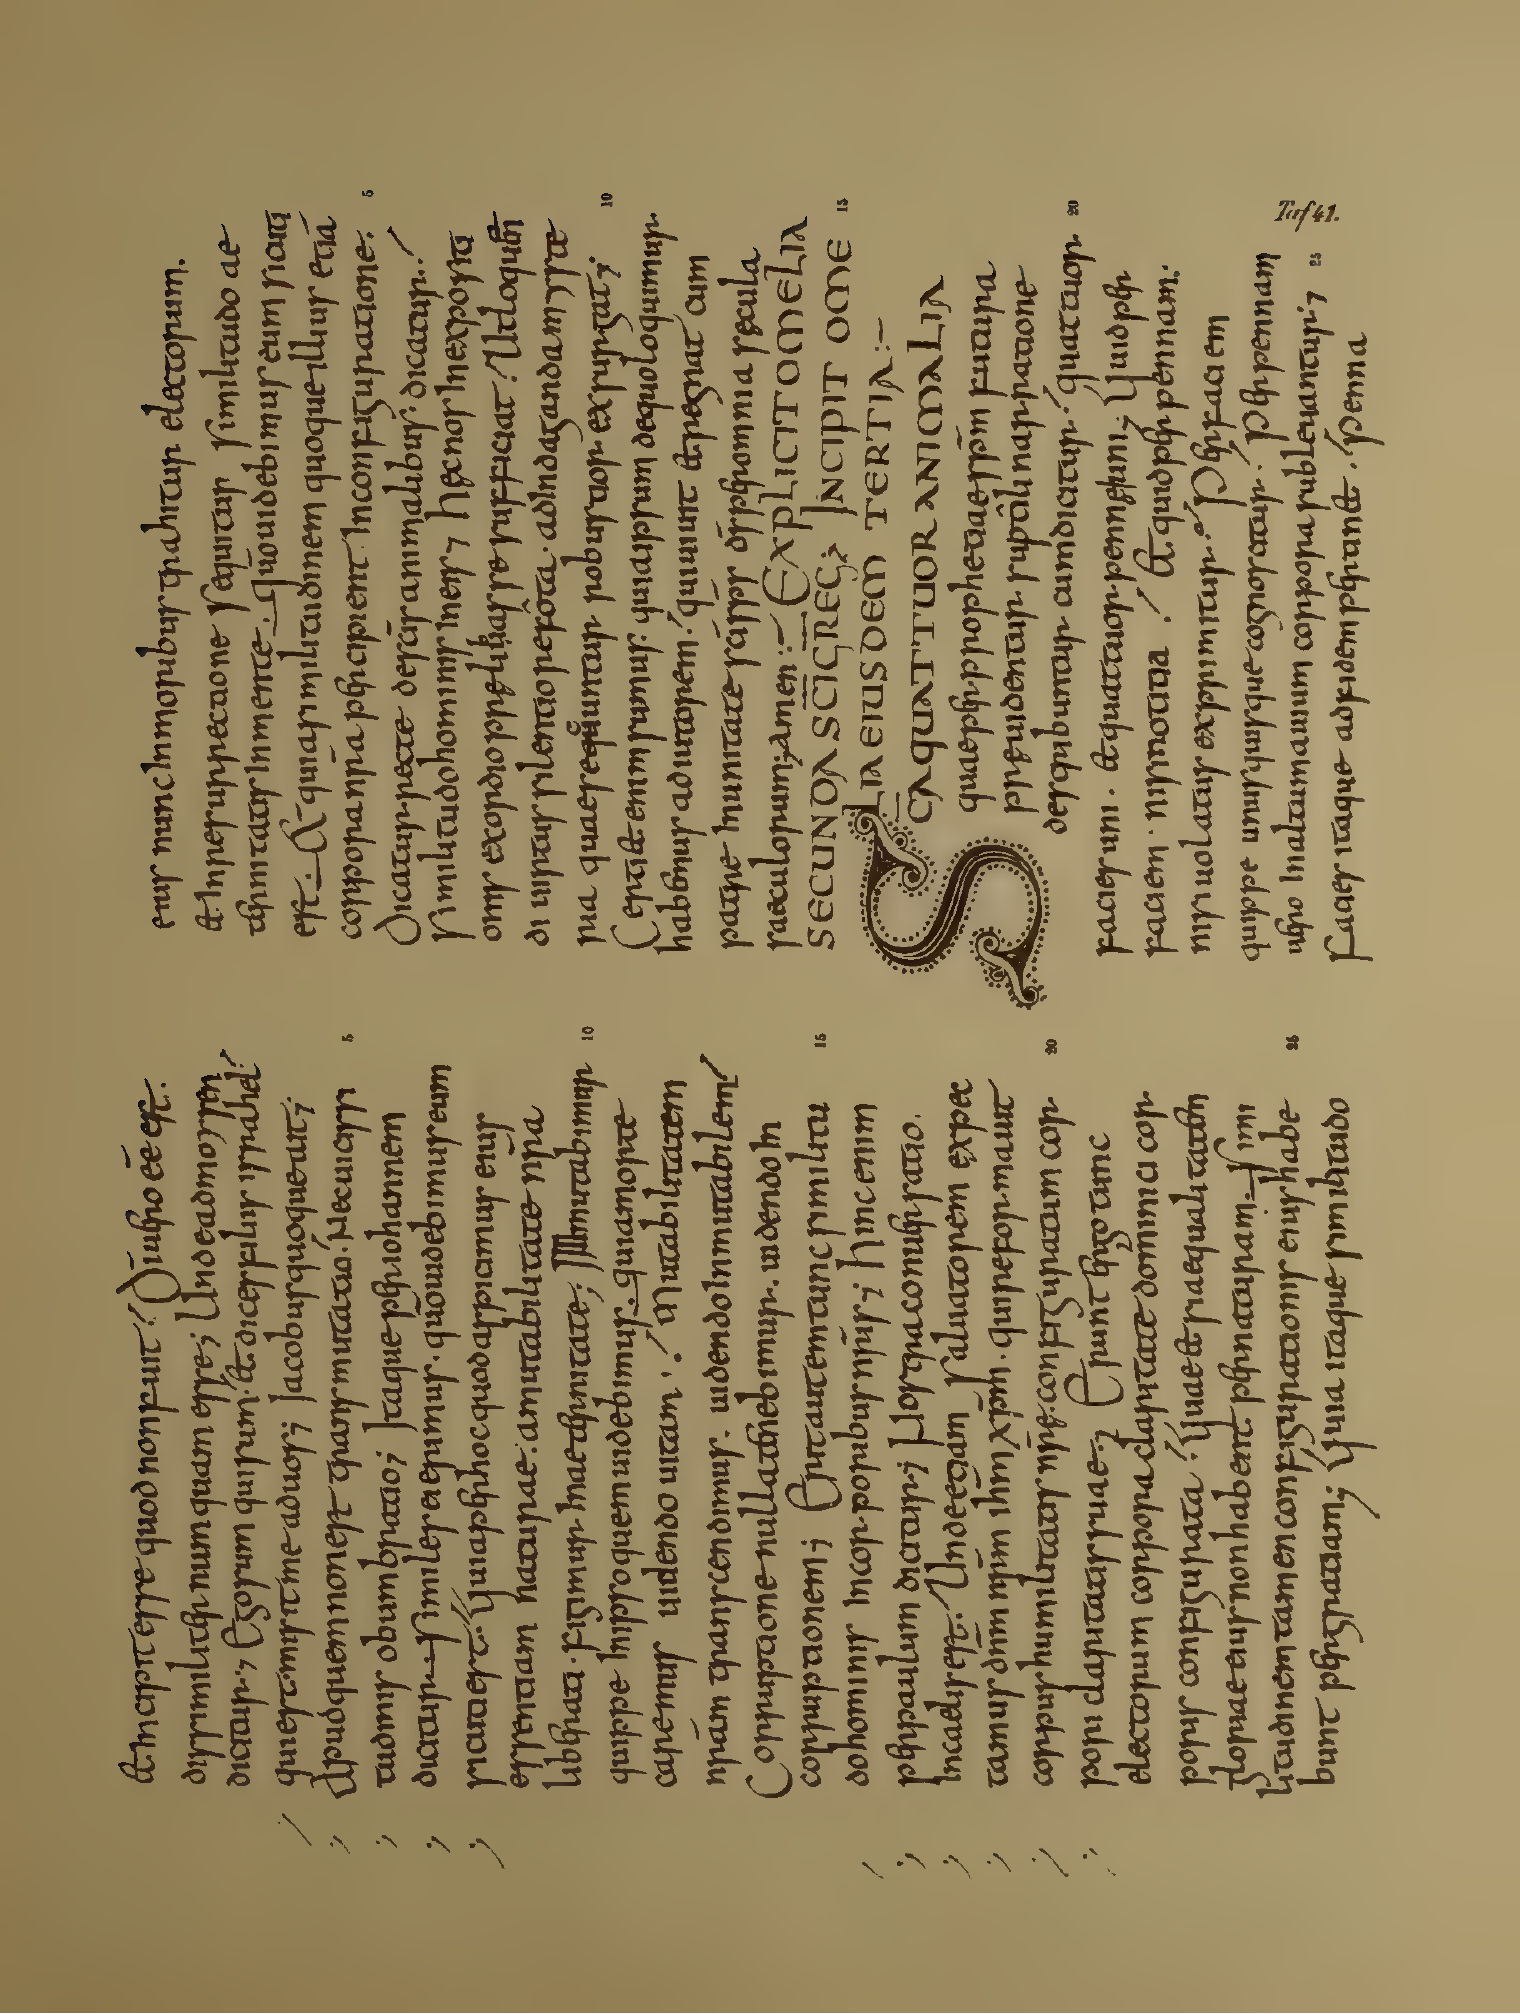 & incipit esse quod non fuit. Dī uero eē est.
dissimiliter numquam esse; Unde ad moysen
dicitur; Ego sum qui sum. & dices filiis israhel.
qui est misit me ad uos; Iacobus quoque ait;
Apud quem non est transmutatio. Nec uicissi
tudinis obumbratio; Itaque per iohannem
dicitur. Similes ei erimus. quō uidebimus eum
sicuti est. Quia per hoc quod aspicimus eius
essentiam naturae. a mutabilitate nr̄a
liberati. figimur in aeternitate; Immutabimur
quippe in ipso quem uidebimus. quia morte
caremus uidendo uitam. Mutabilitatem
nr̄am transcendimus. uidendo inmutabilem.
Corruptione nulla tenebimur. uidendo in
corruptionem; Erit autem tunc similitu
do hominis in corporibus nr̄is; Hinc enim
per paulum dicitur; Nostra conuersatio.
in caelis est. Unde etiam saluatorem expec
tamus dn̄m nr̄m ihm xp̄m. qui reformauit
corpus humilitatis nr̄ae. configuratum cor
pori claritatis suae; Erunt ergo tunc
electorum corpora claritate dominici cor
poris configurata. Quae & si aequalitatem
gloriae eius non habent per naturam. Simi
litudinem tamen configurationis eius habe
bunt per gratiam; Quia itaque similitudo
5
10
15
20
25
eius nunc in moribus trahitur electorum.
& in resurrectione sequitur similitudo ae
ternitatis in mente. quō uidebimus eum sicuti
est. Et quia similitudinem quoque illius etiā
corpora nr̄a percipient in configuratione.
Dicatur recte de sc̄is animalibus dicatur.
similitudo hominis in eis; Haec nos in exposita
onis exordio p̄pelixasse sufficiat. Ut loquen
di uirtus silentio refota. ad indaganda myste
ria quae sequuntur robustior exsurgat;
Certi & enim sumus. quia ipsum de quo loquimur
habemus adiutorem. qui uiuit & regnat cum
patre in unitate sc̄i sp̄s dſ per omnia secula
saeculorum; Amen: Explicit omelia
secunda sc̄i greg; Incipit ome
lia eiusdem tertia:
Sc̄a quattuor animalia
quae per prophetae sp̄m futura
praeuidentur suptili narratione
describuntur cum dicitur. quattuor
facies uni. & quattuor pennae uni; Quid per
faciem. nisi notitia. & quid per pennam.
nisi uolatus exprimitur. Per faciem
quippe unusquisque cognoscitur. Per pennam
uero in altum auium corpora subleuantur;
Facies itaque ad fidem pertinet. Penna
5
10
15
20
25
Taf 41.